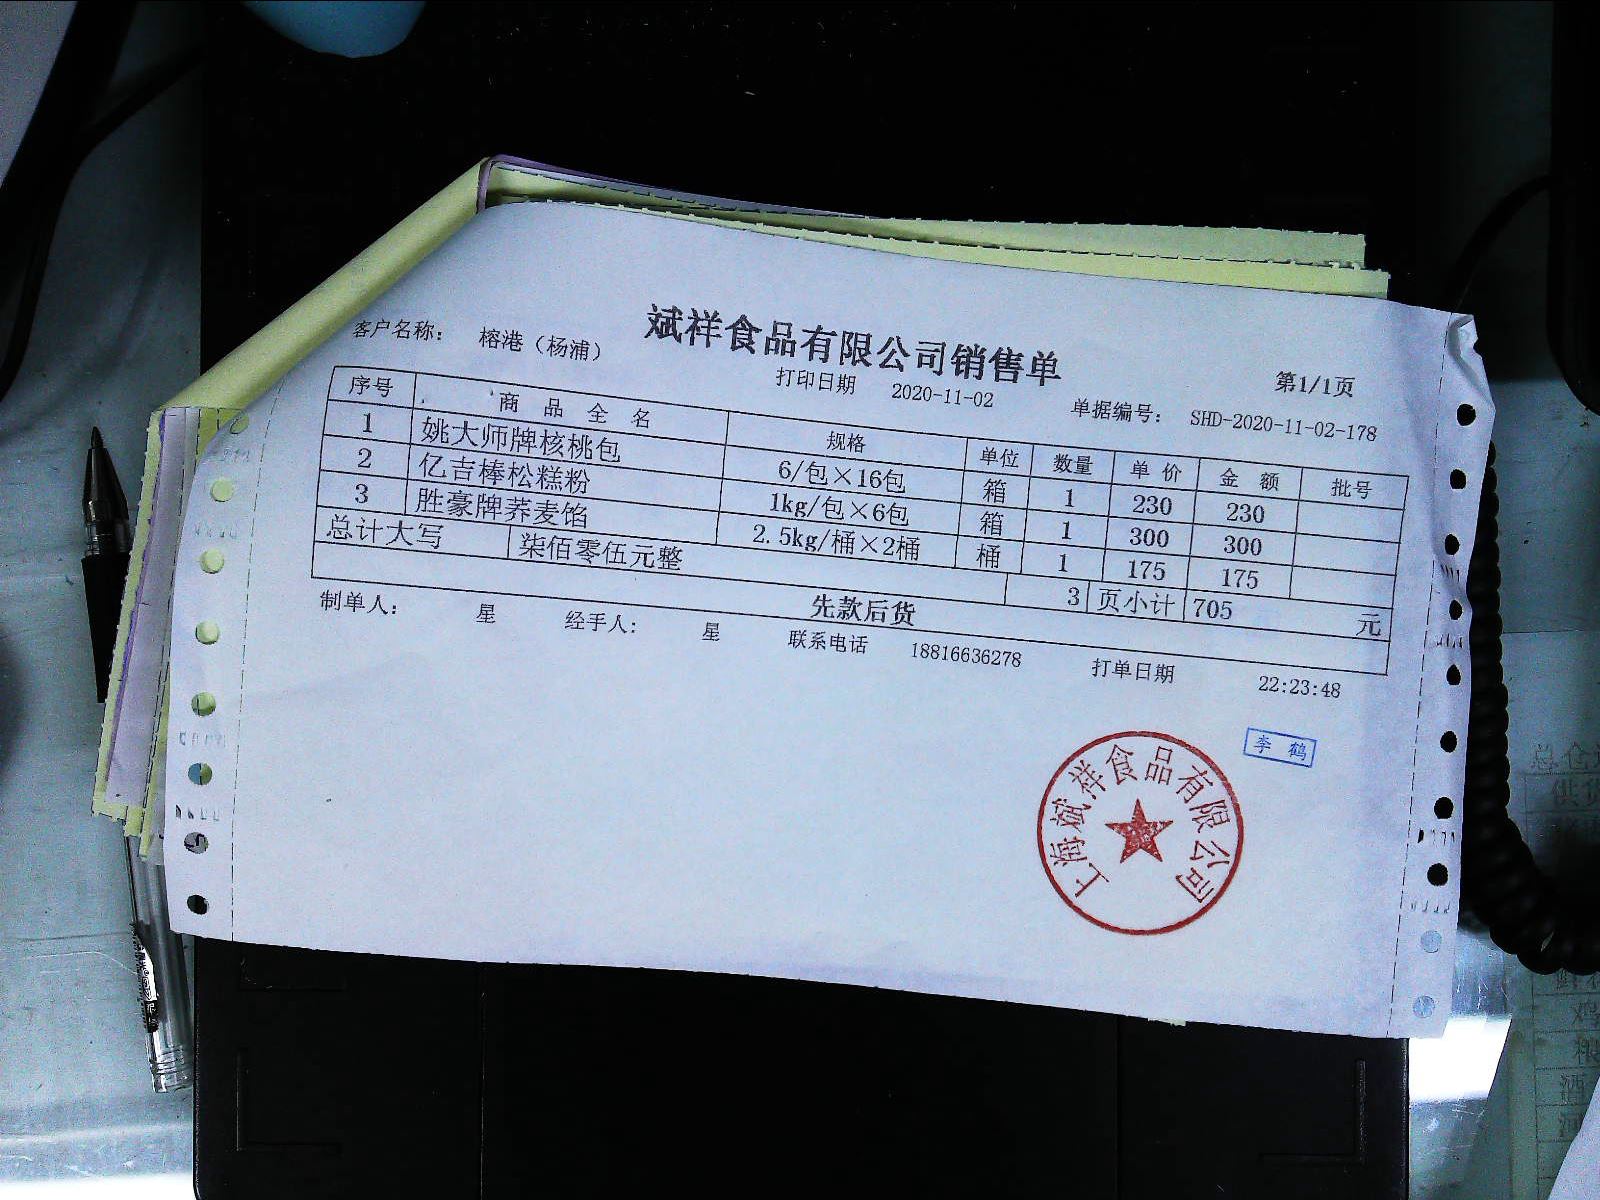 斌祥食品有限公司销售单
客户名称： 榕港（杨浦） 打印日期 2020-11-02 单据编号： SHD-2020-11-02-178 第1/1页
序号 商品全名 规格 单位 数量 单价 金额 批号
1 姚大师牌核桃包 6/包×16包 箱 1 230 230
2 亿吉棒松糕粉 1kg/包×6包 箱 1 300 300
3 胜豪牌荞麦馅 2.5kg/桶×2桶 桶 1 175 175
总计大写 柒佰零伍元整 3 页小计 705 元
先款后货
制单人： 星 经手人： 星 联系电话 18816636278 打单日期 22:23:48
李鹤
上海斌祥食品有限公司
总仓
供货
粮
酒